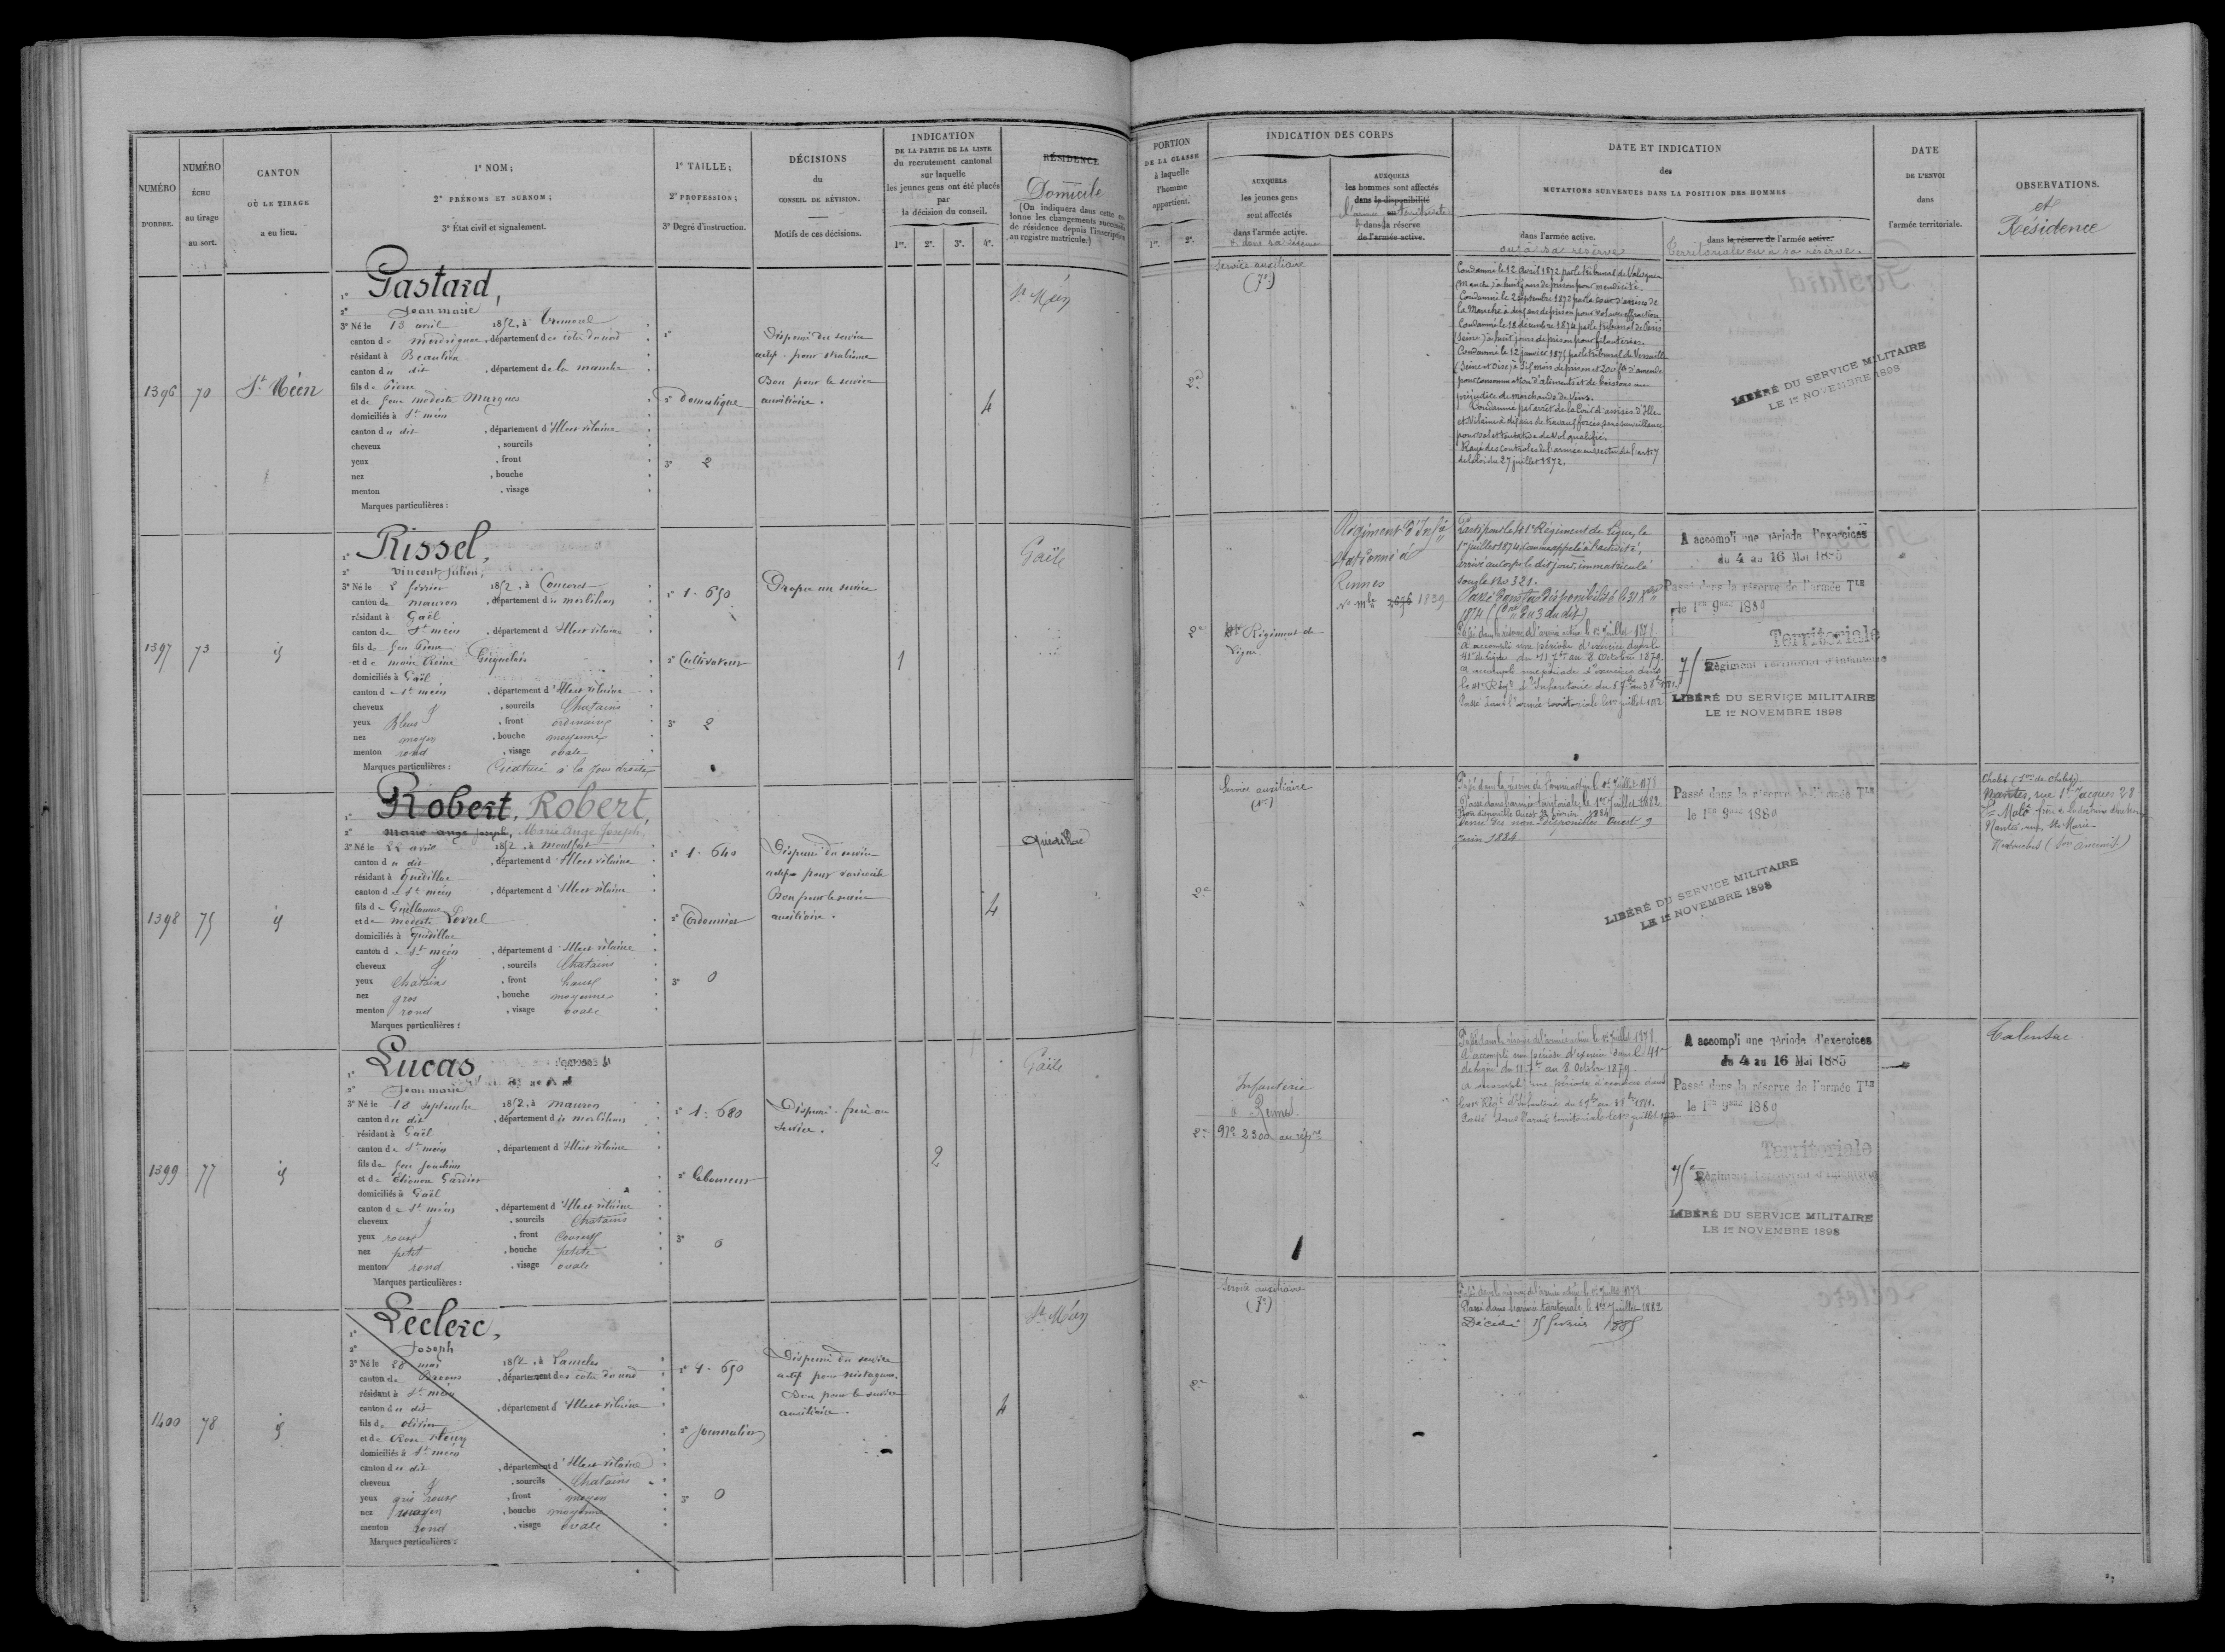 NUMÉRO
D'ORDRE.
NUMÉRO
ÉCHU
au tirage
au sort.
CANTON
OÙ LE TIRAGE
a eu lieu.
1° NOM;
2° PRÉNOMS ET SURNOM;
3° État civil et signalement.
1° TAILLE;
2° PROFESSION;
3° Degré d'instruction.
DÉCISIONS
du
CONSEIL DE RÉVISION.
Motifs de ces décisions.
INDICATION
DE LA PARTIE DE LA LISTE
du recrutement cantonal
sur laquelle
les jeunes gens ont été placés
par
la décision du conseil.
1re. 2e. 3e. 4e.
RÉSIDENCE
Domicile
(On indiquera dans cette colonne les changements successifs de résidence depuis l'inscription au registre matricule.)
PORTION
DE LA CLASSE
à laquelle
l'homme
appartient.
1re. 2e.
INDICATION DES CORPS
AUXQUELS
les jeunes gens
sont affectés
dans l'armée active.
et dans sa réserve
AUXQUELS
les hommes sont affectés
dans la disponibilité
dans la réserve
de l'armée active.
DATE ET INDICATION
des
MUTATIONS SURVENUES DANS LA POSITION DES HOMMES
dans l'armée active.
ou à sa réserve
dans la réserve de l'armée active.
territoriale ou à sa réserve.
DATE
DE L'ENVOI
dans
l'armée territoriale.
OBSERVATIONS.
et
Résidence
1396
70
St Méen
Gastard,
Jean marie
3° Né le 13 avril 1852, à
canton de merdrignac, département des côtes du nord
résidant à Beaulieu
canton du dit, département de la manche
fils de Pierre
et de feue modeste Margnes
domiciliés à St méen
canton du dit, département d'Ille et vilaine
cheveux, sourcils
yeux, front
nez, bouche
menton, visage
Marques particulières :
2° Domestique
3° 2
Dispensé du service
actif pour strabisme
Bon pour le service
auxiliaire.
4
St Méen
2e
Service auxiliaire
(7e)
Condamné le 12 avril 1872 par le tribunal de Valognes
(Manche) à huit jours de prison pour mendicité.
Condamné le 2 septembre 1872 par la cour d'assises de
la Manche à deux ans de prison pour vol avec effraction
Condamné le 18 décembre 1874 par le tribunal de Paris
(Seine) à huit jours de prison pour filouteries.
Condamné le 12 janvier 1875 par le tribunal de Versailles
(Seine et Oise) à six mois de prison et 20 f d'amende
pour consommation d'aliments et de boissons au
préjudice de marchands de vins.
Condamné par arrêt de la Cour d'assises d'Ille
et Vilaine à dix ans de travaux forcés, sans surveillance
pour vol et tentative de vol qualifié.
Rayé des contrôles de l'armée en vertu de l'art 7
de la loi du 27 juillet 1872.
LIBÉRÉ DU SERVICE MILITAIRE
LE 1er NOVEMBRE 1898
1397
73
id
Rissel,
Vincent Julien,
3° Né le 2 février 1852, à Concoret
canton de mauron, département du morbihan
résidant à Gaël
canton de St méen, département d'Ille et vilaine
fils de feu Pierre
et de marie Reine
domiciliés à Gaël
canton de St méen, département d'Ille et vilaine
cheveux, sourcils Chatains
yeux Bleus, front ordinaire
nez moyen, bouche moyenne
menton rond, visage ovale
Marques particulières : Cicatrice à la joue droite
1° 1.650
2° Cultivateur
3° 2
Propre au service
1
Gaël
2e
41e Régiment de
Ligne
Régiment d'Inf
stationné à
Rennes
N° mle 2676 1839
Parti pour le 41e Régiment de Ligne, le
1er juillet 1874 comme appelé à l'activité,
arrivé au corps le dit jour, immatriculé
sous le No 321.
Passé dans la disponibilité le 31 Xbre
1874
Passé dans la réserve de l'armée active le 1er Juillet 1878
A accompli une période d'exercice dans le
41e de ligne du 11 7bre au 8 Octobre 1879.
a accompli une période d'exercices dans
le 41e Régt d'Infanterie
Passé dans l'armée territoriale le 1er juillet 1882
A accompli une période d'exercices
du 4 au 16 Mai 1885
Passé dans la réserve de l'armée Tle
le 1er 9bre 1889
Territoriale
75 Régiment Territorial d'Infanterie
LIBÉRÉ DU SERVICE MILITAIRE
LE 1er NOVEMBRE 1898
1398
75
id
Robert, Robert,
marie ange joseph, Marie Ange Joseph,
3° Né le 22 avril 1852, à montfort
canton du dit, département d'Ille et vilaine
résidant à quédillac
canton de St méen, département d'Ille et vilaine
fils de Guillaume
et de modeste
domiciliés à quédillac
canton de St méen, département d'Ille et vilaine
cheveux, sourcils Chatains
yeux Chatains, front haut
nez gros, bouche moyenne
menton rond, visage ovale
Marques particulières :
1° 1.640
2° Cordonnier
3° 0
Dispensé du service
actif pour varicocèle
Bon pour le service
auxiliaire.
4
Quédillac
2e
Service auxiliaire
Passé dans la réserve de l'armée active le 1er Juillet 1878
Passé dans l'armée territoriale, le 1er Juillet 1882.
Non disponible Ouest 22 février 1884
des non disponibles Ouest 9
juin 1884
Passé dans la réserve de l'armée Tle
le 1er 9bre 1889
LIBÉRÉ DU SERVICE MILITAIRE
LE 1er NOVEMBRE 1898
Cholet
Nantes, rue St Jacques 28
St Malo
Nantes, rue Ste Marie
1399
77
id
Lucas,
Jean marie
3° Né le 18 septembre 1852, à mauron
canton du dit, département du morbihan
résidant à Gaël
canton de St méen, département d'Ille et vilaine
fils de feu Joachim
et de Eléonore Gardier
domiciliés à Gaël
canton de St méen, département d'Ille et vilaine
cheveux, sourcils Chatains
yeux roux, front couvert
nez petit, bouche petite
menton rond, visage ovale
Marques particulières :
1° 1.680
2° laboureur
3° 0
Dispensé. frère au
service.
2
Gaël
2e
Infanterie
à Rennes.
No 2300 au rép
Passé dans la réserve de l'armée active le 1er Juillet 1878
A accompli une période d'exercice dans le 41e
de ligne du 11 7bre au 8 Octobre 1879
a accompli une période d'exercices dans
Passé dans l'armée territoriale le 1er juillet 1882
A accompli une période d'exercices
du 4 au 16 Mai 1885
Passé dans la réserve de l'armée Tle
le 1er 9bre 1889
Territoriale
75e Régiment Territorial d'Infanterie
LIBÉRÉ DU SERVICE MILITAIRE
LE 1er NOVEMBRE 1898
Talensac
1400
78
id
Leclerc,
Joseph
3° Né le 28 mai 1852, à
canton de Broons, département des côtes du nord
résidant à St méen
canton du dit, département d'Ille et vilaine
fils de olivier
et de Rose
domiciliés à St méen
canton du dit, département d'Ille et vilaine
cheveux, sourcils Chatains
yeux gris roux, front moyen
nez moyen, bouche moyenne
menton rond, visage ovale
Marques particulières :
1° 1.650
2° journalier
3° 0
Dispensé du service
actif pour nistagmus.
Bon pour le service
auxiliaire.
4
St Méen
2e
Service auxiliaire
(7e)
Passé dans la réserve de l'armée active le 1er Juillet 1878
Passé dans l'armée territoriale, le 1er Juillet 1882
Décédé 15 février 1885